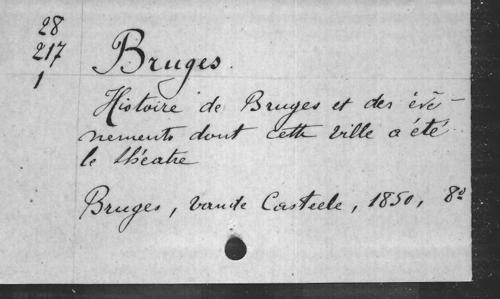 28
217
1
Bruges.
Histoire de Bruges et des évè-
nements dont cette ville a été
le théatre
Bruges, vande Casteele, 1850, 8º